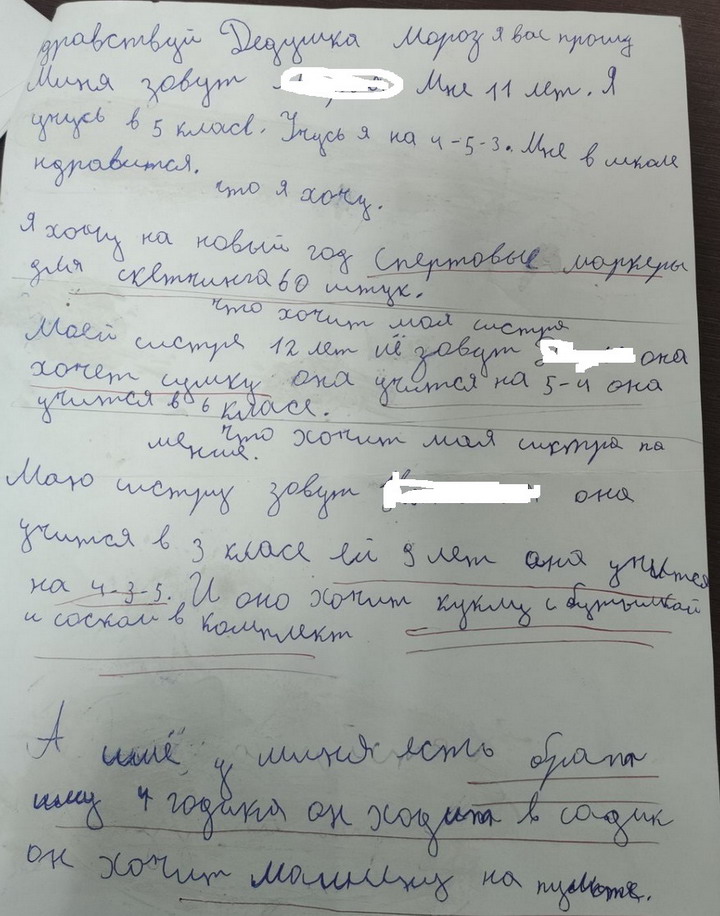 дравствуй Дедушка Мороз я вас прошу
Миня зовут Мне 11 лет. Я
учусь в 5 класе. Учусь я на 4-5-3. Мне в школе
ндравится.
что я хочу.
Я хочу на новый год спертовые маркеры
для скетчинга 60 штук.
что хочит мая систра
Маей систре 12 лет иё зовут она
хочет сумку она учится на 5-4 она
учится в 6 класе.
что хочит мая систра па
менше.
Маю систру зовут она
учится в 3 класе ей 9 лет она учится
на 4-3-5. И оно хочит куклу с бутылкай
и соскай в комплект
А ишё у миня есть брат
иму 4 годика он ходит в садик
он хочит машинку на пульте.